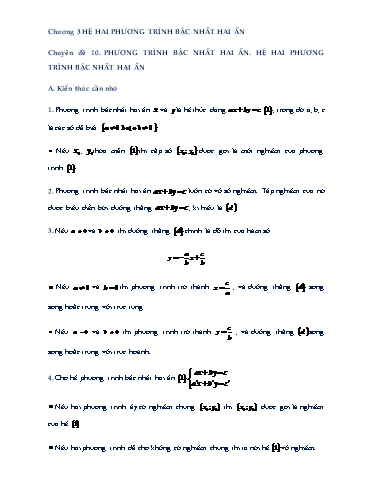 Chương 3 HỆ HAI PHƯƠNG TRÌNH BẬC NHẤT HAI ẨN
Chuyên đề 10. PHƯƠNG TRÌNH BẬC NHẤT HAI ẨN. HỆ HAI PHƯƠNG
TRÌNH BẬC NHẤT HAI ẨN
A. Kiến thức cần nhớ
1. Phương trình bậc nhất hai ẩn x và y là hệ thức dạng ax+by=c (1), trong đó a, b, c
là các số đã biết (a≠0 hoặc b≠0)
• Nếu x₀, y₀ thỏa mãn (1) thì cặp số (x₀;y₀) được gọi là một nghiệm của phương
trình (1).
2. Phương trình bậc nhất hai ẩn ax+by=c luôn có vô số nghiệm. Tập nghiệm của nó
được biểu diễn bởi đường thẳng ax+by=c, kí hiệu là (d)
3. Nếu a≠0 và b≠0 thì đường thẳng (d) chính là đồ thị của hàm số
y=-a/b x+c/b
• Nếu a≠0 và b=0 thì phương trình trở thành x=c/a, và đường thẳng (d) song
song hoặc trùng với trục tung
• Nếu a=0 và b≠0 thì phương trình trở thành y=c/b, và đường thẳng (d) song
song hoặc trùng với trục hoành.
4. Cho hệ phương trình bậc nhất hai ẩn (1) { ax+by=c
a'x+b'y=c'
• Nếu hai phương trình ấy có nghiệm chung (x₀;y₀) thì (x₀;y₀) được gọi là nghiệm
của hệ (1)
• Nếu hai phương trình đã cho không có nghiệm chung thì ta nói hệ (1) vô nghiệm.